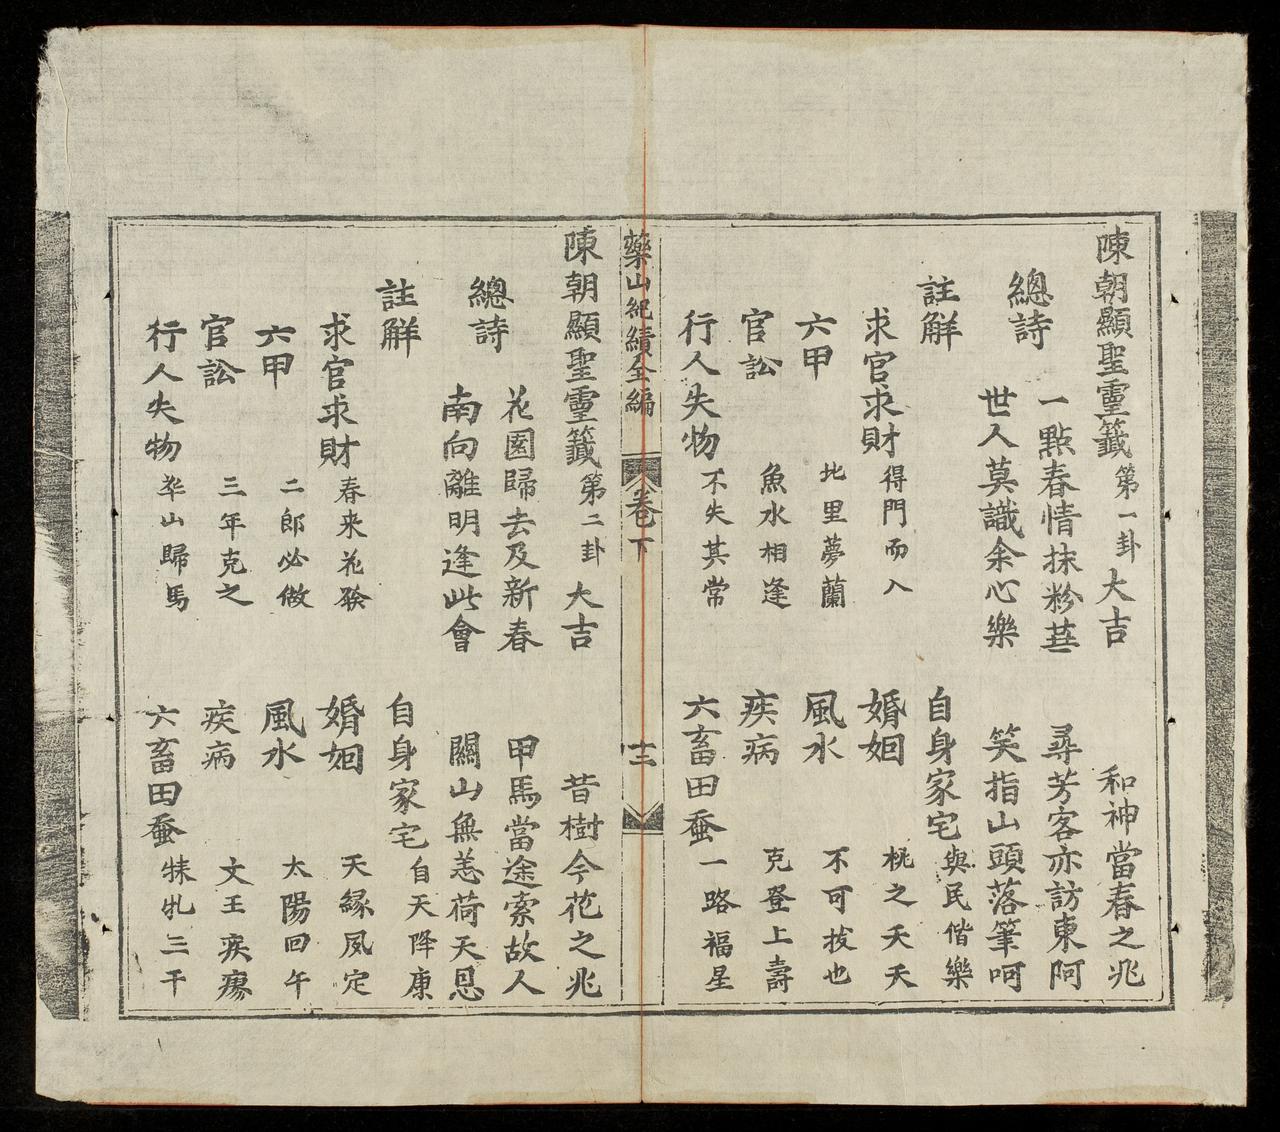 陳朝顯聖靈籤 第一卦 大吉 和神當春之兆
一點春情抹粉 尋芳客亦訪東阿
總詩
世人莫識余心樂 笑指山頭落筆呵
註觧 自身家宅 與民偕樂
求官求財 得門而入 婚姻 桃之夭夭
六甲 北里夢蘭 風水 不可拔也
官訟 魚水相逢 疾病 克登上壽
行人失物 不失其常 六畜田蚕 一路福星
藥山紀績全編 卷下 十二
陳朝顯聖靈籤 第二卦 大吉 昔樹今花之兆
花園歸去及新春 甲馬當途索故人
總詩
南向離明逢此會 關山無恙荷天恩
註觧 自身家宅 自天降康
求官求財 春来花發 婚姻 天緣夙定
六甲 二郎必做 風水 太陽回午
官訟 三年克之 疾病 文王疾瘳
行人失物 华山歸馬 六畜田蚕 牝三千